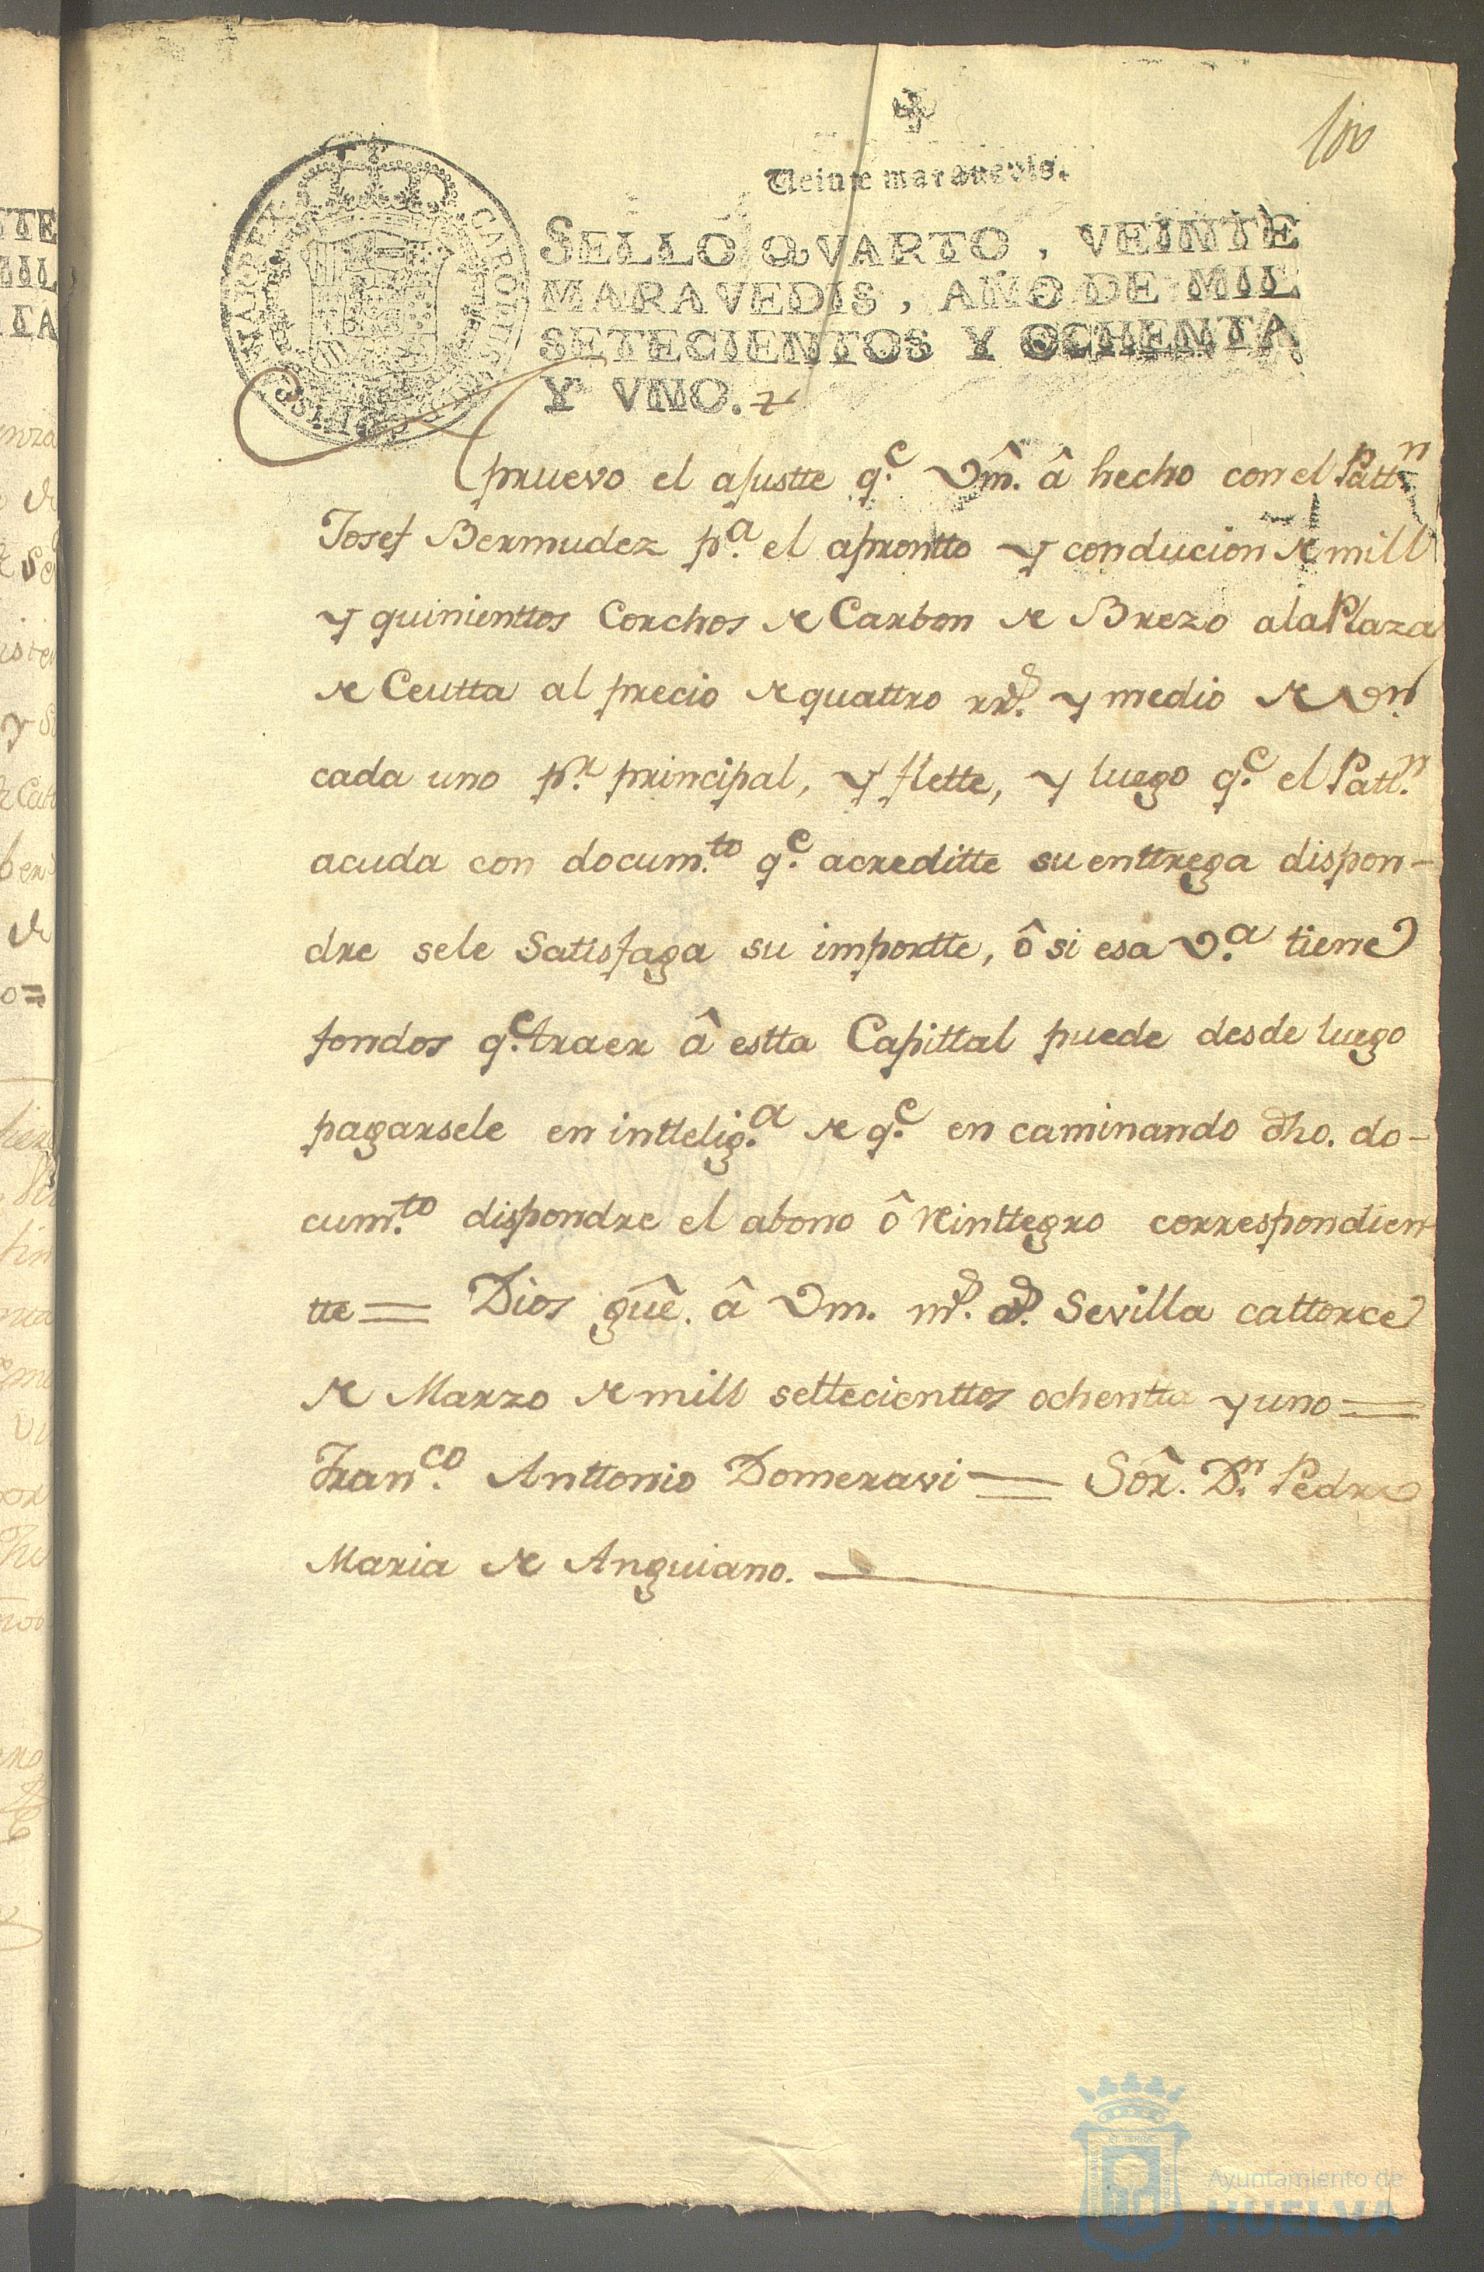 100
Veinte maravedis.
SELLO QVARTO, VEINTE
MARAVEDIS, AÑO DE MIL
SETECIENTOS Y OCHENTA
Y VNO.
Apruevo el ajustte q.e Vm̂. â hecho con el Patt.n
Josef Bermudez p.a el aprontto y conducion de mill
y quinienttos Corchos de Carbon de Brezo a la Plaza
de Ceutta al precio de quattro rr.s y medio de v.n
cada uno p.r principal, y flette, y luego q.e el Patt.n
acuda con docum.to q.e acreditte su enttrega dispon-
dre sele Satisfaga su importte, ô si esa V.a tiene
fondos q.e traer â estta Capittal puede desde luego
pagarsele en inttelig.a de q.e en caminando dho. do-
cum.to dispondre el abono ô reinttegro correspondien-
tte = Dios gûe. â Vm. m.s a.s Sevilla cattorce
de Marzo de mill settecienttos ochentta y uno =
Fran.co Anttonio Domeravi = Sôr. D.n Pedro
Maria de Anguiano.
CAROLUS III
Ayuntamiento de
HUELVA